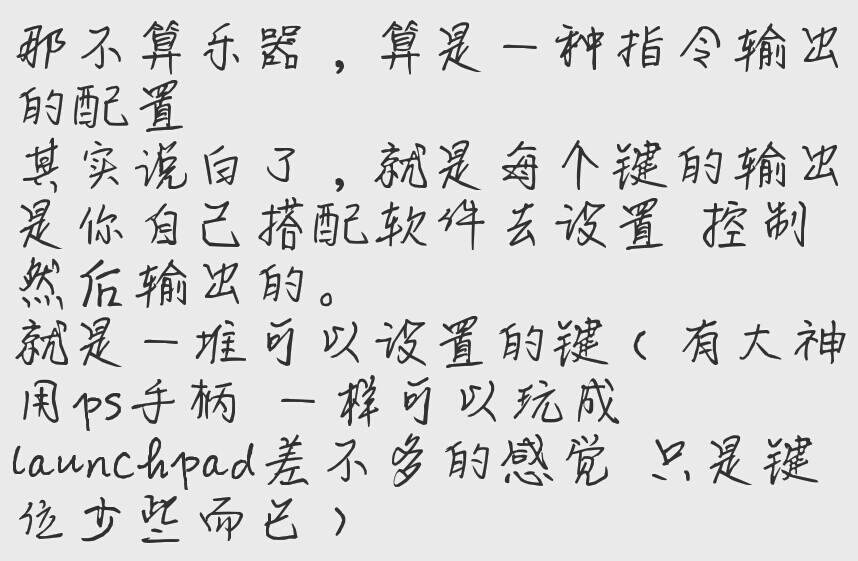 那不算乐器，算是一种指令输出
的配置
其实说白了，就是每个键的输出
是你自己搭配软件去设置 控制
然后输出的。
就是一堆可以设置的键（有大神
用ps手柄 一样可以玩成
launchpad差不多的感觉 只是键
位少些而已）